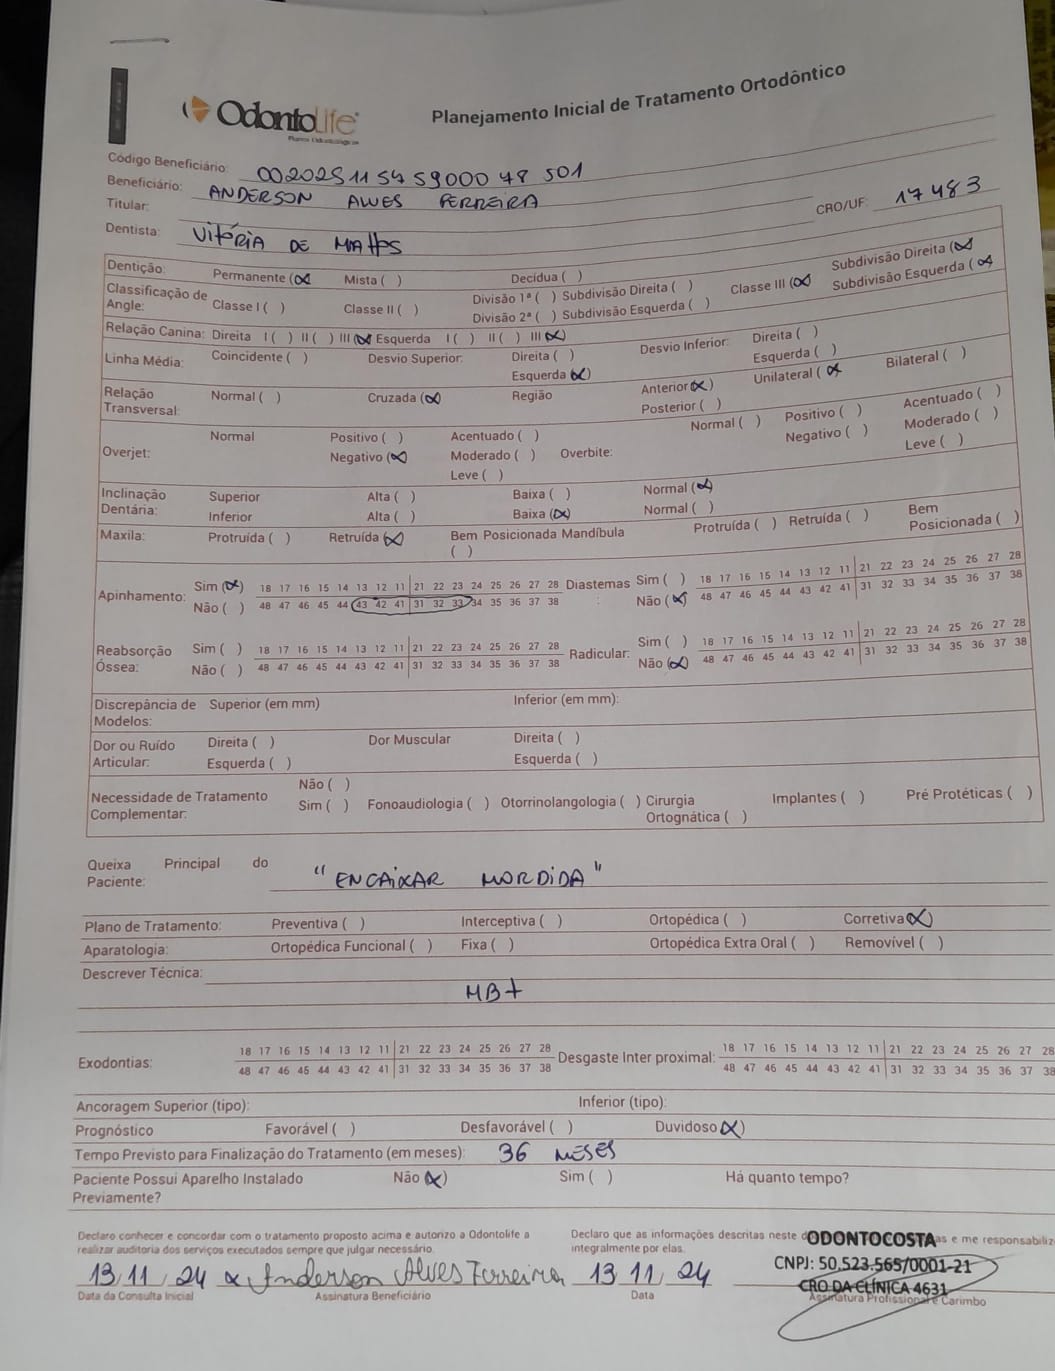 OdontoLife
Planos Odontológicos
Planejamento Inicial de Tratamento Ortodôntico
Código Beneficiário: 00202511545900048501
Beneficiário: ANDERSON ALVES FERREIRA
Titular:
CRO/UF: 17483
Dentista: VITÓRIA DE MATTOS
Dentição: Permanente (X) Mista ( ) Decídua ( )
Classificação de Angle: Classe I ( ) Classe II ( ) Divisão 1ª ( ) Subdivisão Direita ( ) Divisão 2ª ( ) Subdivisão Esquerda ( ) Classe III (X) Subdivisão Direita (X) Subdivisão Esquerda (X)
Relação Canina: Direita I ( ) II ( ) III (X) Esquerda I ( ) II ( ) III (X)
Linha Média: Coincidente ( ) Desvio Superior: Direita ( ) Esquerda (X) Desvio Inferior: Direita ( ) Esquerda ( )
Relação Transversal: Normal ( ) Cruzada (X) Região Anterior (X) Posterior ( ) Unilateral (X) Bilateral ( )
Overjet: Normal Positivo ( ) Negativo (X) Acentuado ( ) Moderado ( ) Leve ( ) Overbite: Normal ( ) Positivo ( ) Negativo ( ) Acentuado ( ) Moderado ( ) Leve ( )
Inclinação Dentária: Superior Alta ( ) Baixa ( ) Normal (X)
Inferior Alta ( ) Baixa (X) Normal ( )
Maxila: Protruída ( ) Retruída (X) Bem Posicionada ( ) Mandíbula Protruída ( ) Retruída ( ) Bem Posicionada ( )
Apinhamento: Sim (X) 18 17 16 15 14 13 12 11 21 22 23 24 25 26 27 28 Diastemas Sim ( ) 18 17 16 15 14 13 12 11 21 22 23 24 25 26 27 28
Não ( ) 48 47 46 45 44 43 42 41 31 32 33 34 35 36 37 38 : Não (X) 48 47 46 45 44 43 42 41 31 32 33 34 35 36 37 38
Reabsorção Óssea: Sim ( ) 18 17 16 15 14 13 12 11 21 22 23 24 25 26 27 28 Radicular: Sim ( ) 18 17 16 15 14 13 12 11 21 22 23 24 25 26 27 28
Não ( ) 48 47 46 45 44 43 42 41 31 32 33 34 35 36 37 38 Não (X) 48 47 46 45 44 43 42 41 31 32 33 34 35 36 37 38
Discrepância de Modelos: Superior (em mm) Inferior (em mm):
Dor ou Ruído Articular: Direita ( ) Esquerda ( ) Dor Muscular Direita ( ) Esquerda ( )
Necessidade de Tratamento Complementar: Não ( ) Sim ( ) Fonoaudiologia ( ) Otorrinolangologia ( ) Cirurgia Ortognática ( ) Implantes ( ) Pré Protéticas ( )
Queixa Principal do Paciente: "ENCAIXAR MORDIDA"
Plano de Tratamento: Preventiva ( ) Interceptiva ( ) Ortopédica ( ) Corretiva (X)
Aparatologia: Ortopédica Funcional ( ) Fixa ( ) Ortopédica Extra Oral ( ) Removível ( )
Descrever Técnica:
MBT
Exodontias: 18 17 16 15 14 13 12 11 21 22 23 24 25 26 27 28 Desgaste Inter proximal: 18 17 16 15 14 13 12 11 21 22 23 24 25 26 27 28
48 47 46 45 44 43 42 41 31 32 33 34 35 36 37 38 48 47 46 45 44 43 42 41 31 32 33 34 35 36 37 38
Ancoragem Superior (tipo): Inferior (tipo):
Prognóstico Favorável ( ) Desfavorável ( ) Duvidoso (X)
Tempo Previsto para Finalização do Tratamento (em meses): 36 MESES
Paciente Possui Aparelho Instalado Previamente? Não (X) Sim ( ) Há quanto tempo?
Declaro conhecer e concordar com o tratamento proposto acima e autorizo a Odontolife a
realizar auditoria dos serviços executados sempre que julgar necessário.
Declaro que as informações descritas neste as e me responsabilizo
integralmente por elas.
ODONTOCOSTA
CNPJ: 50.523.565/0001-21
CRO DA CLÍNICA 4631
13/11/24 x Anderson Alves Ferreira 13/11/24
Data da Consulta Inicial Assinatura Beneficiário Data Assinatura Profissional e Carimbo